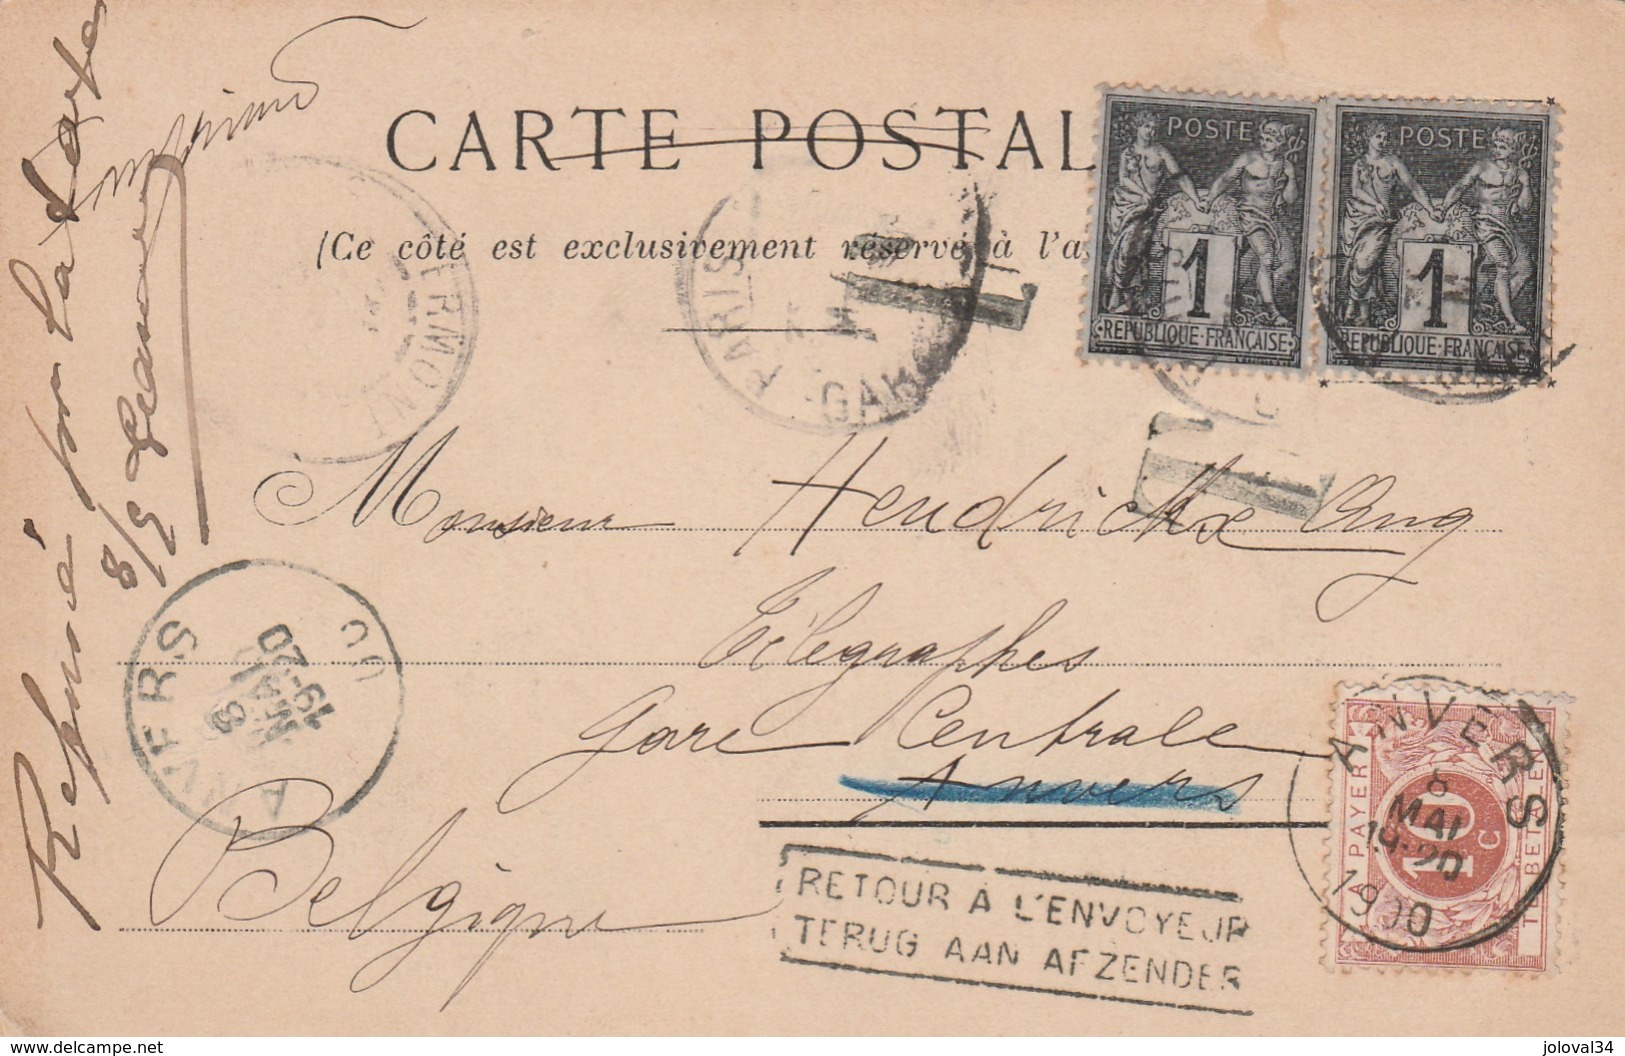 CARTE POSTALE
(Ce côté est exclusivement réservé à l'a
POSTE
1
REPUBLIQUE FRANÇAISE
POSTE
1
REPUBLIQUE FRANÇAISE
PARIS
GARE
T
T
Refusé par la Poste
8/5
Monsieur Hendrickx Aug
Télégraphes
Gare Centrale
Anvers
Belgique
ANVERS
8
MAI
19-20
00
RETOUR A L'ENVOYEUR
TERUG AAN AFZENDER
A PAYER
10 C
TE BETALEN
ANVERS
8
MAI
19-20
1900
delcampe.net
joloval34